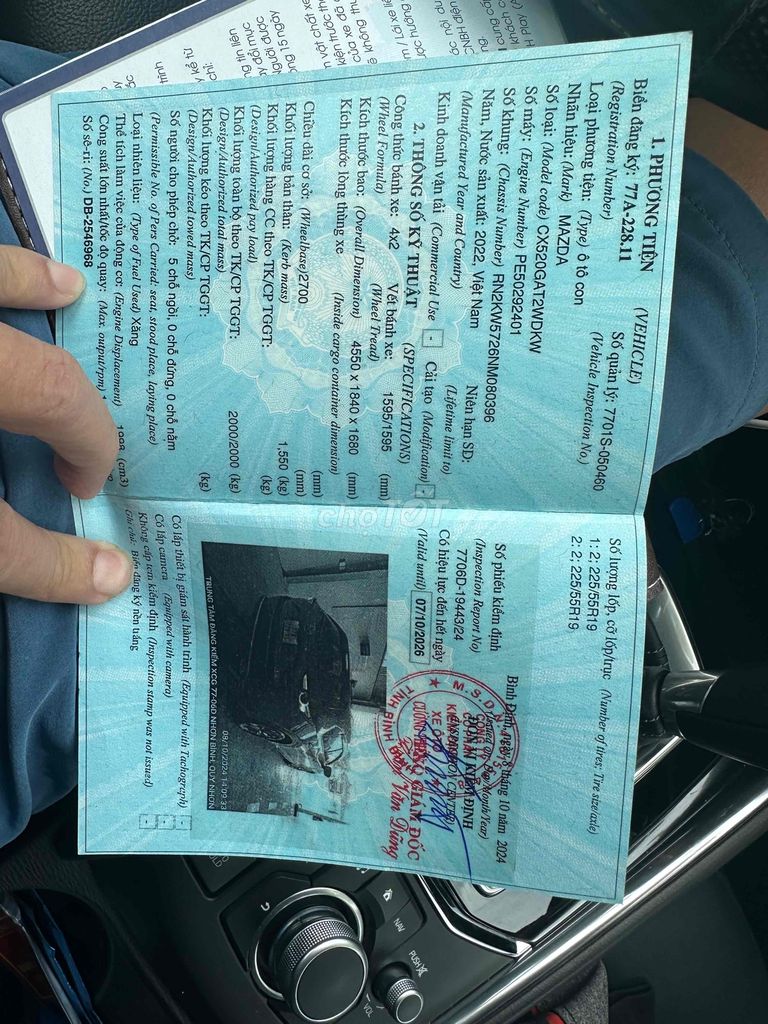 1. PHƯƠNG TIỆN (VEHICLE)
Biển đăng ký: 77A-228.11 Số quản lý: 7701S-050460
(Registration Number) (Vehicle Inspection No.)
Loại phương tiện: (Type) ô tô con
Nhãn hiệu: (Mark) MAZDA
Số loại: (Model code) CX520GAT2WDKW
Số máy: (Engine Number) PE50292401
Số khung: (Chassis Number) RN2KW5726NM080396
Năm, Nước sản xuất: 2022, Việt Nam Niên hạn SD:
(Manufactured Year and Country) (Lifetime limit to)
Kinh doanh vận tải (Commercial Use) Cải tạo (Modification)
2. THÔNG SỐ KỸ THUẬT (SPECIFICATIONS)
Công thức bánh xe: 4x2 Vết bánh xe: 1595/1595 (mm)
(Wheel Formula) (Wheel Tread)
Kích thước bao: (Overall Dimension) 4550 x 1840 x 1680 (mm)
Kích thước lòng thùng xe (Inside cargo container dimension)
(mm)
Chiều dài cơ sở: (Wheelbase) 2700 (mm)
Khối lượng bản thân: (Kerb mass) 1,550 (kg)
Khối lượng hàng CC theo TK/CP TGGT: (kg)
(Design/Authorized pay load)
Khối lượng toàn bộ theo TK/CP TGGT: 2000/2000 (kg)
(Design/Authorized total mass)
Khối lượng kéo theo TK/CP TGGT: (kg)
(Design/Authorized towed mass)
Số người cho phép chở: 5 chỗ ngồi, 0 chỗ đứng, 0 chỗ nằm
(Permissible No. of Pers Carried: seat, stood place, laying place)
Loại nhiên liệu: (Type of Fuel Used) Xăng
Thể tích làm việc của động cơ: (Engine Displacement) 1998 (cm3)
Công suất lớn nhất/tốc độ quay: (Max. output/rpm)
Số sê-ri: (No.) DB-2546968
Số lượng lốp, cỡ lốp/trục (Number of tires; Tire size/axle)
1: 2; 225/55R19
2: 2; 225/55R19
Số phiếu kiểm định
(Inspection Report No)
7706D-19443/24
Có hiệu lực đến hết ngày
(Valid until) 07/10/2026
Bình Định, ngày 8 tháng 10 năm 2024
ĐƠN VỊ KIỂM ĐỊNH
GIÁM ĐỐC
Văn Dũng
08/10/2024 14:09:33
TRUNG TÂM ĐĂNG KIỂM XCG 77-06D NHƠN BÌNH, QUY NHƠN
Có lắp thiết bị giám sát hành trình (Equipped with Tachograph)
Có lắp camera (Equipped with camera)
Không cấp tem kiểm định (Inspection stamp was not issued)
Ghi chú: Biển đăng ký nền trắng
chợTỐT
NAV
PUSH
VOL